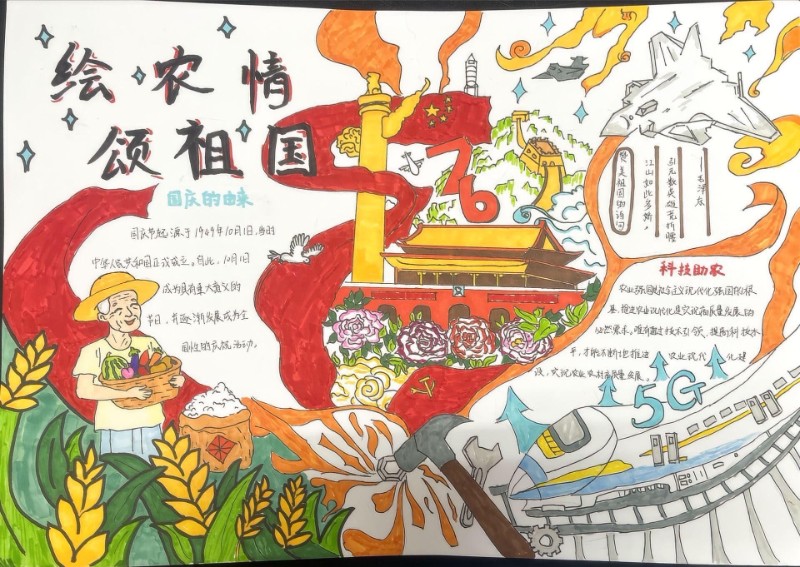 绘农情
颂祖国
国庆的由来
国庆节起源于1949年10月1日,当时
中华人民共和国正式成立。自此,10月1日
成为具有重大意义的
节日,并逐渐发展成为全
国性的庆祝活动。
76
赞美祖国的诗句
江山如此多娇,
引无数英雄竞折腰
——毛泽东
科技助农
农业强国是社会主义现代化强国的根
基,推进农业现代化是实现高质量发展的
必然要求。唯有
技术引领、
科技水
平,才能不断地推进 农业现代化建
设,实现农业农村高质量发展。
5G